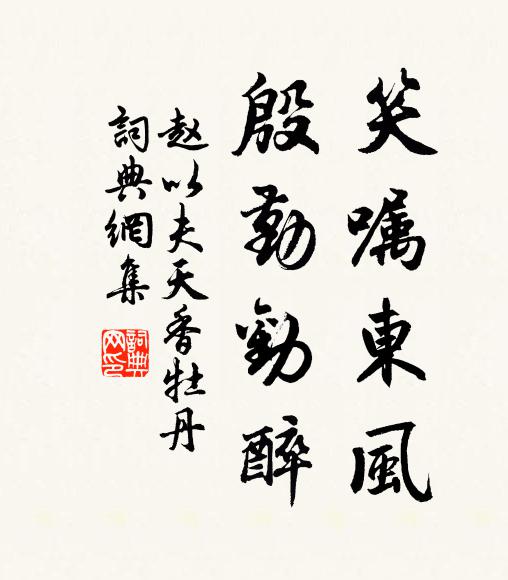 笑嘱東風
殷勤勸醉
赵以夫天香牡丹
詞典網集
詞典
网印